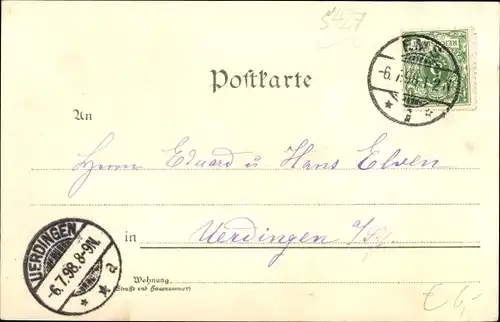 5427
EMS
-6.7.98.1-2N.
a
Postkarte
An
Herrn Eduard u Hans Elven
in Uerdingen a/Rh.
UERDINGEN
-6.7.98.8-9N.
a
Wohnung
(Straße und Hausnummer)
€ 6,-